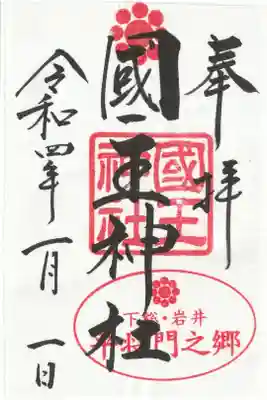 奉拝
國王神社
國王神社
下総・岩井
平将門之郷
令和四年一月一日